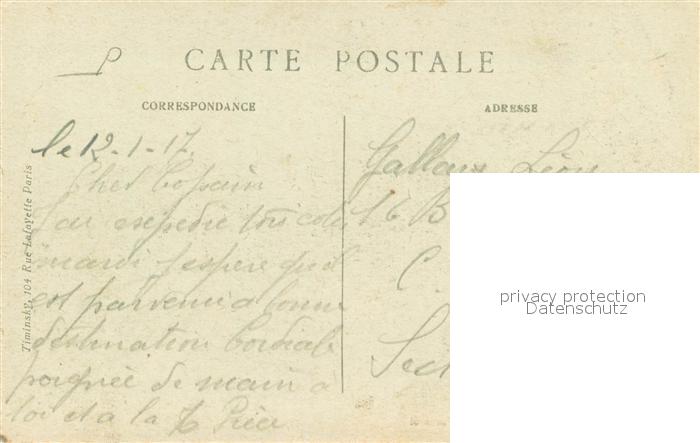 CARTE POSTALE
CORRESPONDANCE
ADRESSE
le 12-1-17
Cher Copain
J'ai expedie ton colis
mardi j'espere qu'il
est parvenu a bonne
destination Cordiale
poignée de main a
toi et a la
Léon
16 B
C.
Sect
Timinsky, 104 Rue Lafayette Paris
privacy protection
Datenschutz